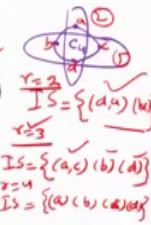 a 2
b C₄ c 1
d
r=2
IS={(d,a) (b
r=3
IS={(a,c) (b) (d)}
r=4
IS={(a) (b) (c)(d)